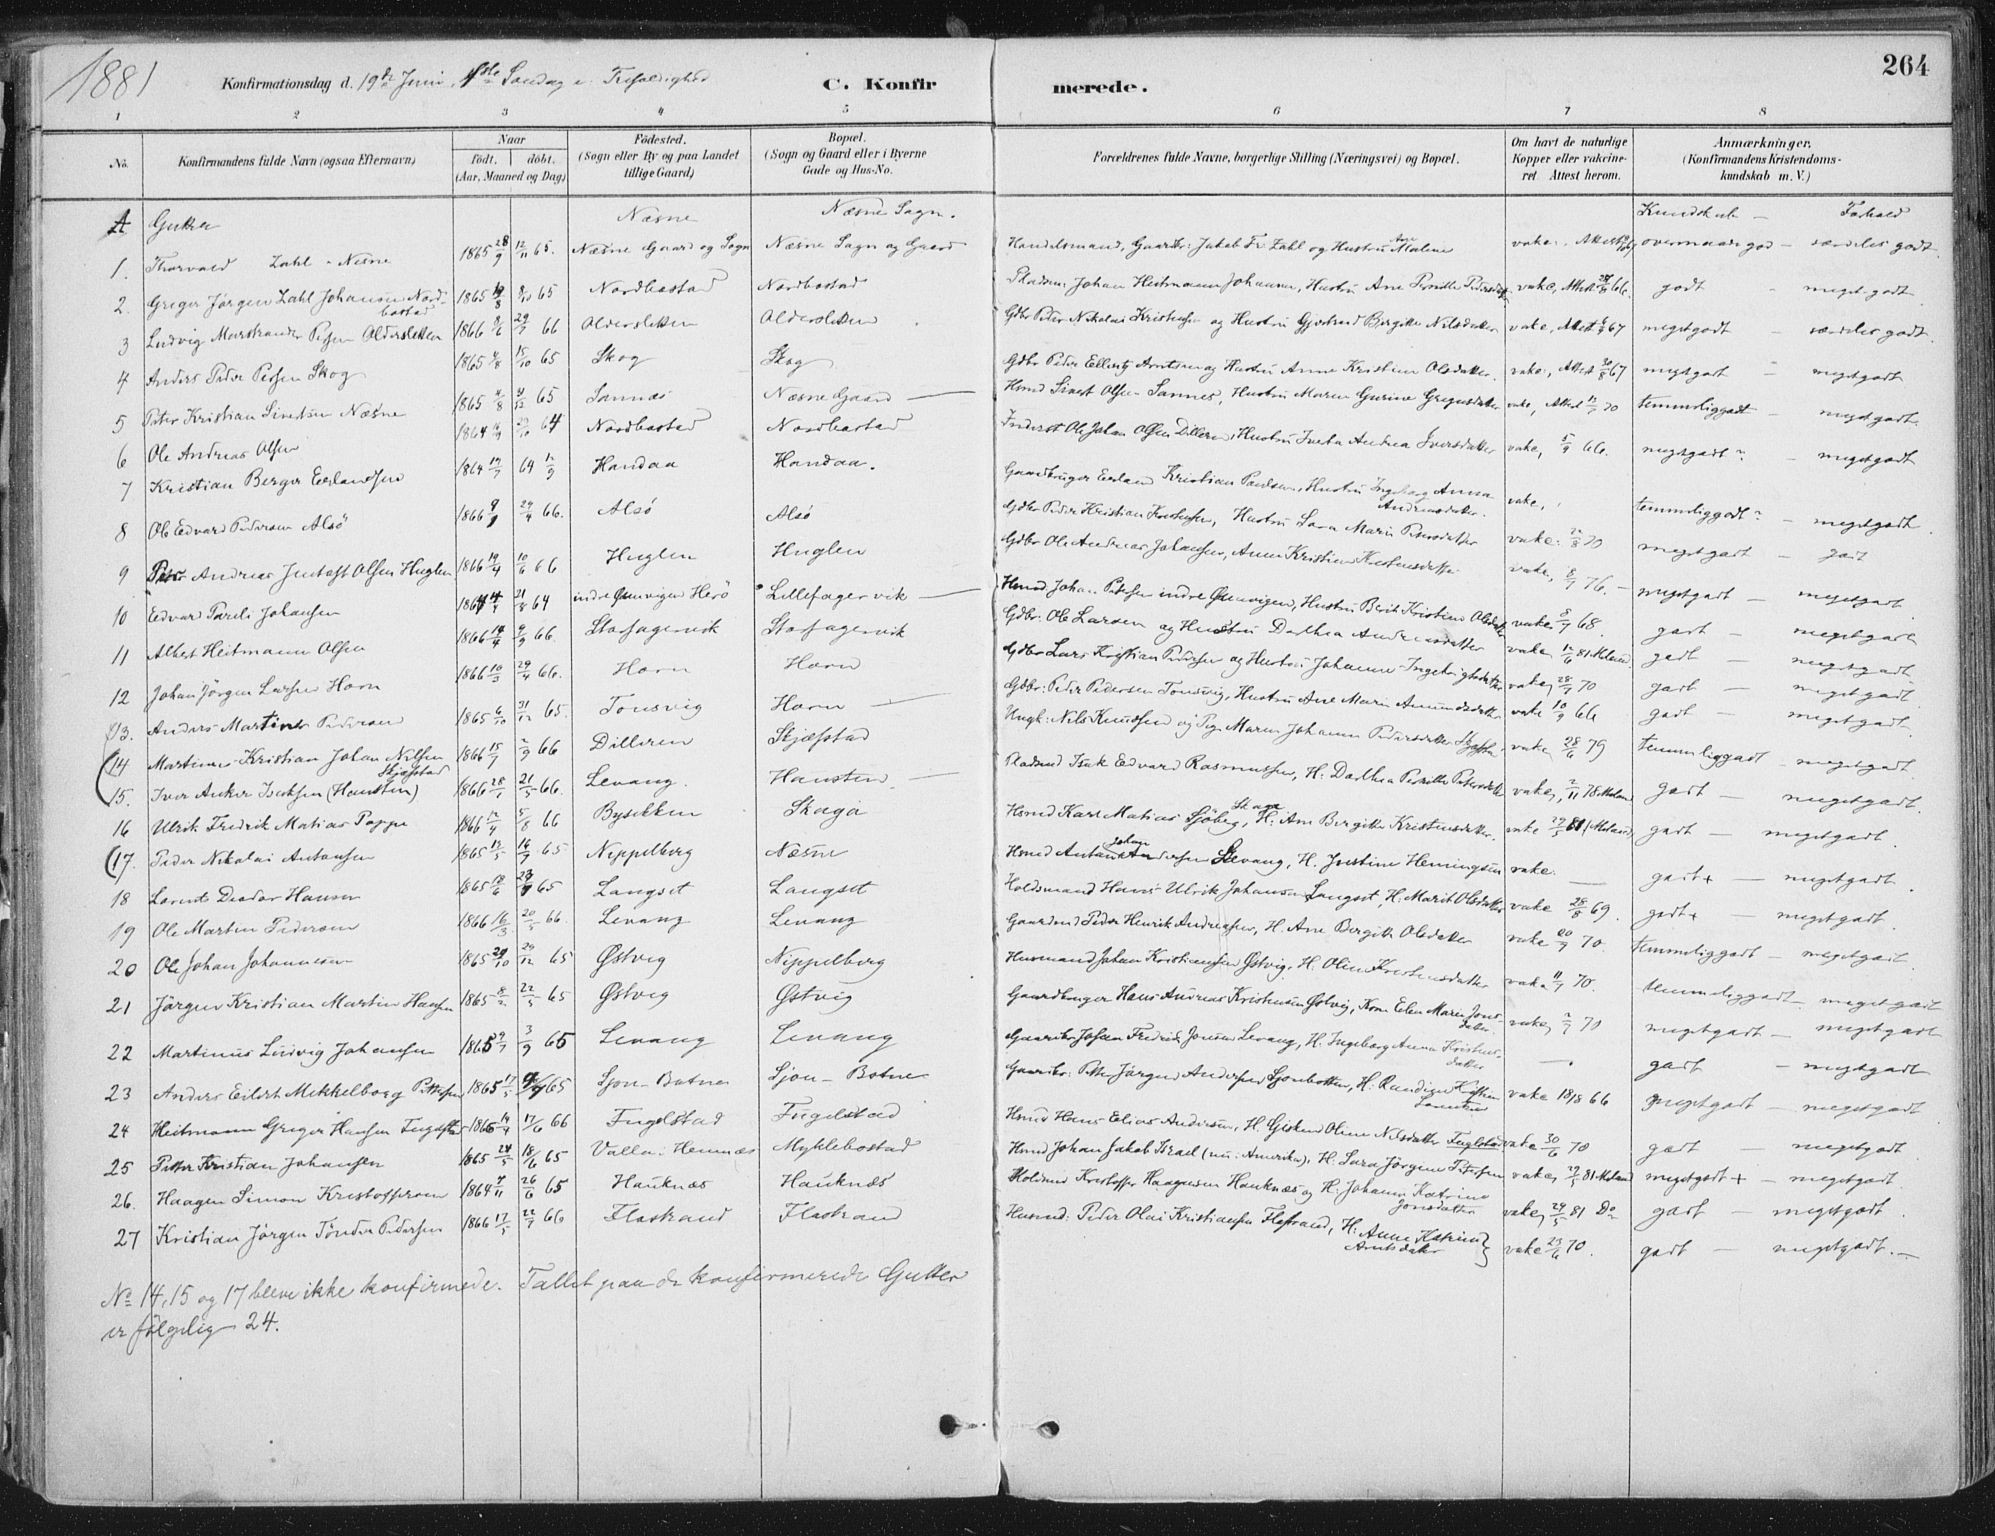 1881
Konfirmationsdag d. 19de Juni, 1ste Søndag e. Trefoldighed
C. Konfirmerede.
264
1 2 3 4 5 6 7 8
No. Konfirmandens fulde Navn (ogsaa Efternavn) Naar födt. döbt. (Aar, Maaned og Dag) Födested. (Sogn eller By og paa Landet tillige Gaard) Bopæl. (Sogn og Gaard eller i Byerne Gade og Hus-No. Forældrenes fulde Navne, borgerlige Stilling (Næringsvei) og Bopæl. Om havt de naturlige Kopper eller vakcineret. Attest herom. Anmærkninger. (Konfirmandens Kristendomskundskab m. V.)
A Gutter Næsne Næsne Sogn. Kundskab — Forhold
1. Thorvald Zahl - Næsne 1865 28/9 12/11 65. Næsne Gaard og Sogn Næsne Sogn og Gaard Handelsmand, Gaardbr: Jakob Fr. Zahl og Hustru Ane Malene vakc., Attest overmaade god - særdeles godt.
2. Greger Jörgen Zahl Johansen Nordbostad 1865 8/10 65 Nordbostad Nordbostad Pladsm: Johan Heitmann Johansen, Hustru Ane Pernille Pedersdatter vakc, Attest 66. godt - meget godt.
3 Ludvig Marstrander Petersen Oldersletten 1866 8/6 29/7 66 Oldersletten Oldersletten Gdbr Peder Nikolai Kristensen og Hustru Gjertrud Bergitte Nilsdatter vakc, Attest 67 megetgodt - særdeles godt.
4 Anders Peder Petersen Skog 1865 4/8 15/10 65 Skog Skog Gdbr Peder Ellertz Arntsen og Hustru Anne Kristine Olsdatter. vakc., Attest 30/8 67 megetgodt - megetgodt
5 Peter Kristian Sivertsen Næsne 1865 4/8 65 Sannes Næsne Gaard — Hsmd Sivert Olsen Sannes, Hustru Maren Gurine Gregusdatter vakc, Attest 70 temmeliggodt - megetgodt.
6 Ole Andreas Olsen 1864 64 Nordbostad Nordbostad Inderst Ole Johan Olsen Dilleren, Hustru Iverta Andrea Iversdatter vakc, 5/9 66. megetgodt - megetgodt
7 Kristian Berger Eerlandsen 1864 19/7 64 Handaa Handaa. Gaardbruger Eerland Kristian Paulsen, Hustru Ingeborg Anna Andreasdatter. vakc, temmeliggodt - megetgodt
8 Ole Edvard Pedersen Alsö 1866 29/4 66. Alsö Alsö Gdbr Peder Kristian Kristensen, Hustru Sara Marie Petersdatter vakc. 70 megetgodt - godt
9 Peter Andreas Justaft Olsen Huglen 1866 19/4 10/6 66 Huglen Huglen Gdbr Ole Andreas Johansen, Anne Kristine Kristensdatter vakc, 8/7 76. - megetgodt - megetgodt
10 Edvard Pareli Johansen 1864 21/8 64 indre Qvarvigen Herö Lillefagervik — Hsmd Johan Petersen indre Qvarvigen, Hustru Berit Kristine Olsdatter vakc 8/7 68. godt - megetgodt
11 Albert Heitmann Olsen 1866 14/4 9/9 66. Storfagervik Storfagervik Gdbr: Ole Larsen og Hustru Dorthea Andreasdatter vakc. 12/6 81 Moland godt - megetgodt
12 Johan Jörgen Larsen Horn 1866 10/3 29/4 66. Horn Horn Gdbr Lars Kristian Pedersen og Hustru Johanne Ingebrigtsdatter vakc, 28/7 70 godt - megetgodt
13. Anders Martines Pedersen 1865 6/10 31/12 65. Tonsvig Horn — Gdbr: Peder Pedersen Tonsvig, Hustru Ane Maria Amundsdatter vakc 10/9 66 godt - megetgodt.
14 Martinus Kristian Johan Nilsen Skjæfstad 1866 15/7 2/9 66 Dilleren Skjæfstad Ungk: Nils Knudsen og Pige Maren Johanna Pedersdatter Skjæfstad vakc, 28/6 79 temmeliggodt - megetgodt
15. Iver Anker Isaksen (Hausten) 1866 28/1 21/5 66. Levang. Hausten — Pladsmd Isak Edvard Rasmussen, H: Dorthea Pernille Petersdatter vakc, 2/11 78. Moland godt - megetgodt
16 Ulrik Fredrik Matias Poppe 1866 12/4 5/8 66 Bysekken Skaga Hsmd Karl Matias Sjöberg, Skaga H: Ane Bergitte Kristensdatter. vakc 27/5 81 (Moland) godt - megetgodt
17. Peder Nikolai Antonsen 1865 12/5 16/7 65 Nippelberg Næsne Hsmd Anton Johan Andersen Levang, H. Justine Hemingsen vakc. — godt + - megetgodt.
18 Lorents Deodor Hansen 1865 65 Langset Langset Holdsmand Hans Ulrik Johansen Langset, H: Marit Olsdatter vakc 28/8 69. godt + - megetgodt
19 Ole Martin Pedersen 1866 16/3 20/5 66. Levang Levang Gaardmd Peder Henrik Andreassen, H. Ane Bergitte Olsdatter vakc 20/7 70 temmeliggodt - megetgodt.
20 Ole Johan Johannesen 1865 29/10 29/12 65 Østvig Nippelberg Husmand Johan Kristiansen Østvig, H. Oline Kristensdatter vakc. 11/7 70. temmeliggodt - megetgodt
21 Jörgen Kristian Martin Hansen 1865 8/2 22/5 65 Østvig Østvig Gaardbruger Hans Andreas Kristensen Østvig, Kone Elen Maren Jonsdatter. vakc, 2/7 70 megetgodt - megetgodt
22 Martinus Ludvig Johansen 1865 29/7 3/9 65 Levang Levang Gaardbr Johan Fredrik Jonsen Levang, H: Ingeborg Anna Kristensdatter — godt - megetgodt
23 Anders Eilert Mekkelborg Pettersen 1865 17/5 65 Sjon-Botnen Sjon-Botnen Gaardbr: Petter Jörgen Andersen Sjonbotten, H: Randine Kristine Larentsen vakc 18/8 66 megetgodt - megetgodt
24 Heitmann Greger Hansen Fugelstad 1866 14/4 17/6 66 Fugelstad Fugelstad Hsmd Hans Elias Andersen, H. Gisken Oline Nilsdatter Fuglstad vakc 30/6 70 godt - megetgodt
25 Petter Kristian Johansen 1865 24/5 18/6 65 Valla: Hemnæs Myklebostad Hsmd Johan Jakob Israel (nu: Amerika), H: Sara Jörgine Petersen vakc, 27/5 81 Moland megetgodt + - megetgodt.
26. Haagen Simon Kristoffersen 1864 4/11 26/6 65 Hauknæs Hauknæs Holdsmd Kristoffer Haagensen Hauknæs og H: Johanne Katrine Jonsdatter vakc, 24/5 81 Do godt - megetgodt.
27 Kristian Jörgen Tönder Pedersen 1866 17/5 22/7 66 Flostrand Flostrand Husmd: Peder Olai Kristiansen Flostrand, H: Anne Katrine Arntsdatter vakc 23/6 70. godt - megetgodt.
No 14, 15 og 17 bleve ikke konfirmede. Tallet paa de konfirmerede Gutter
er fölgelig 24.